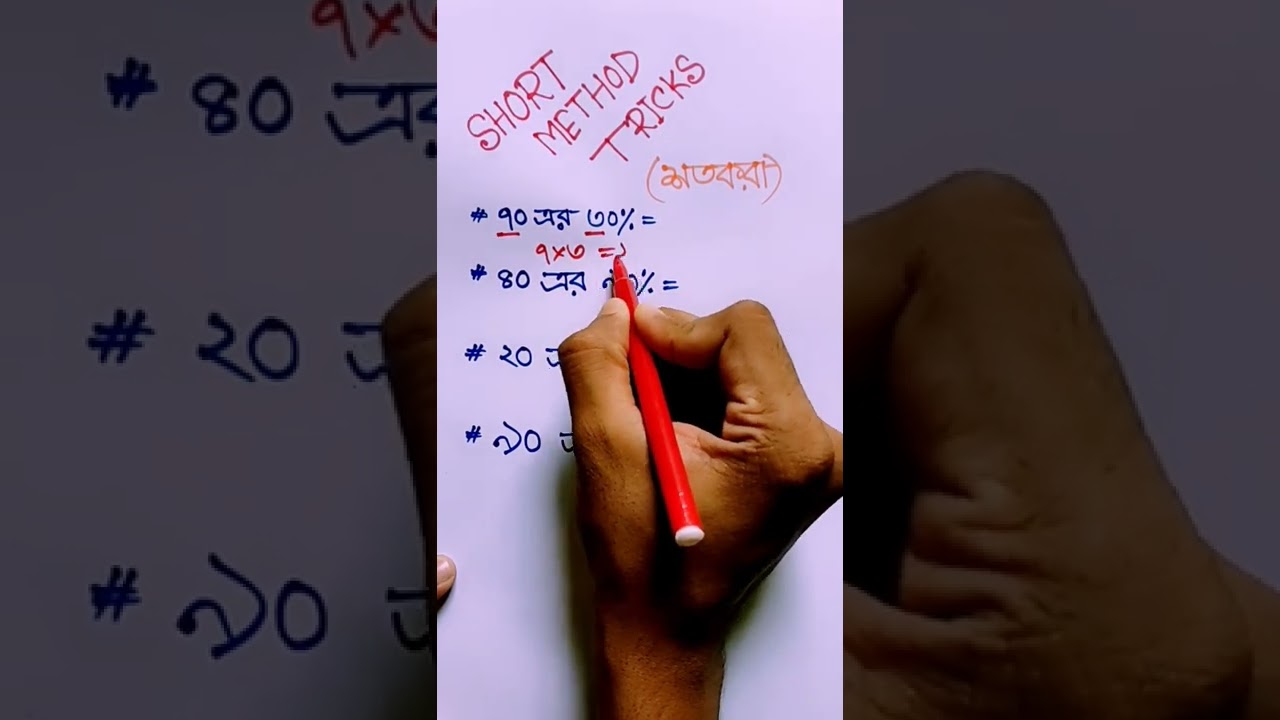 SHORT
METHOD
TRICKS
(শতকরা)
# ৭০ এর ৩০% =
৭×৩ =
# ৪০ এর % =
# ২০
# ৯০